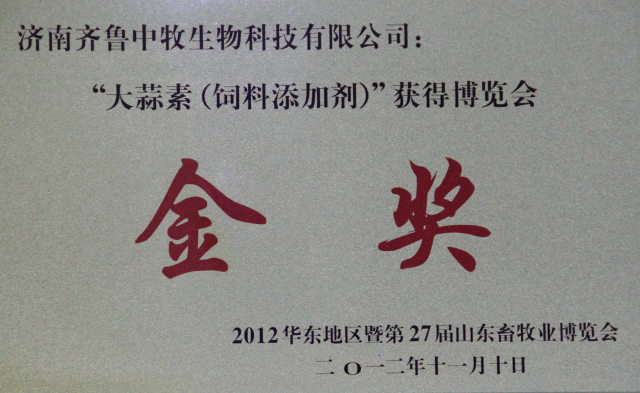 济南齐鲁中牧生物科技有限公司：
“大蒜素（饲料添加剂）”获得博览会
金奖
2012华东地区暨第27届山东畜牧业博览会
二〇一二年十一月十日